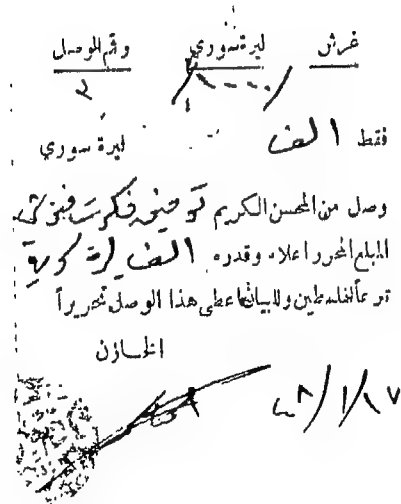 غرش ليرة سوري رقم الوصل
/١٠٠٠/ ٢
فقط الف ليرة سوري
وصل من المحسن الكريم توفيق
المبلغ المحرر اعلاه وقدره الف ليرة
تبرعاً لفلسطين وللبيان اعطي هذا الوصل تحريراً
الخازن